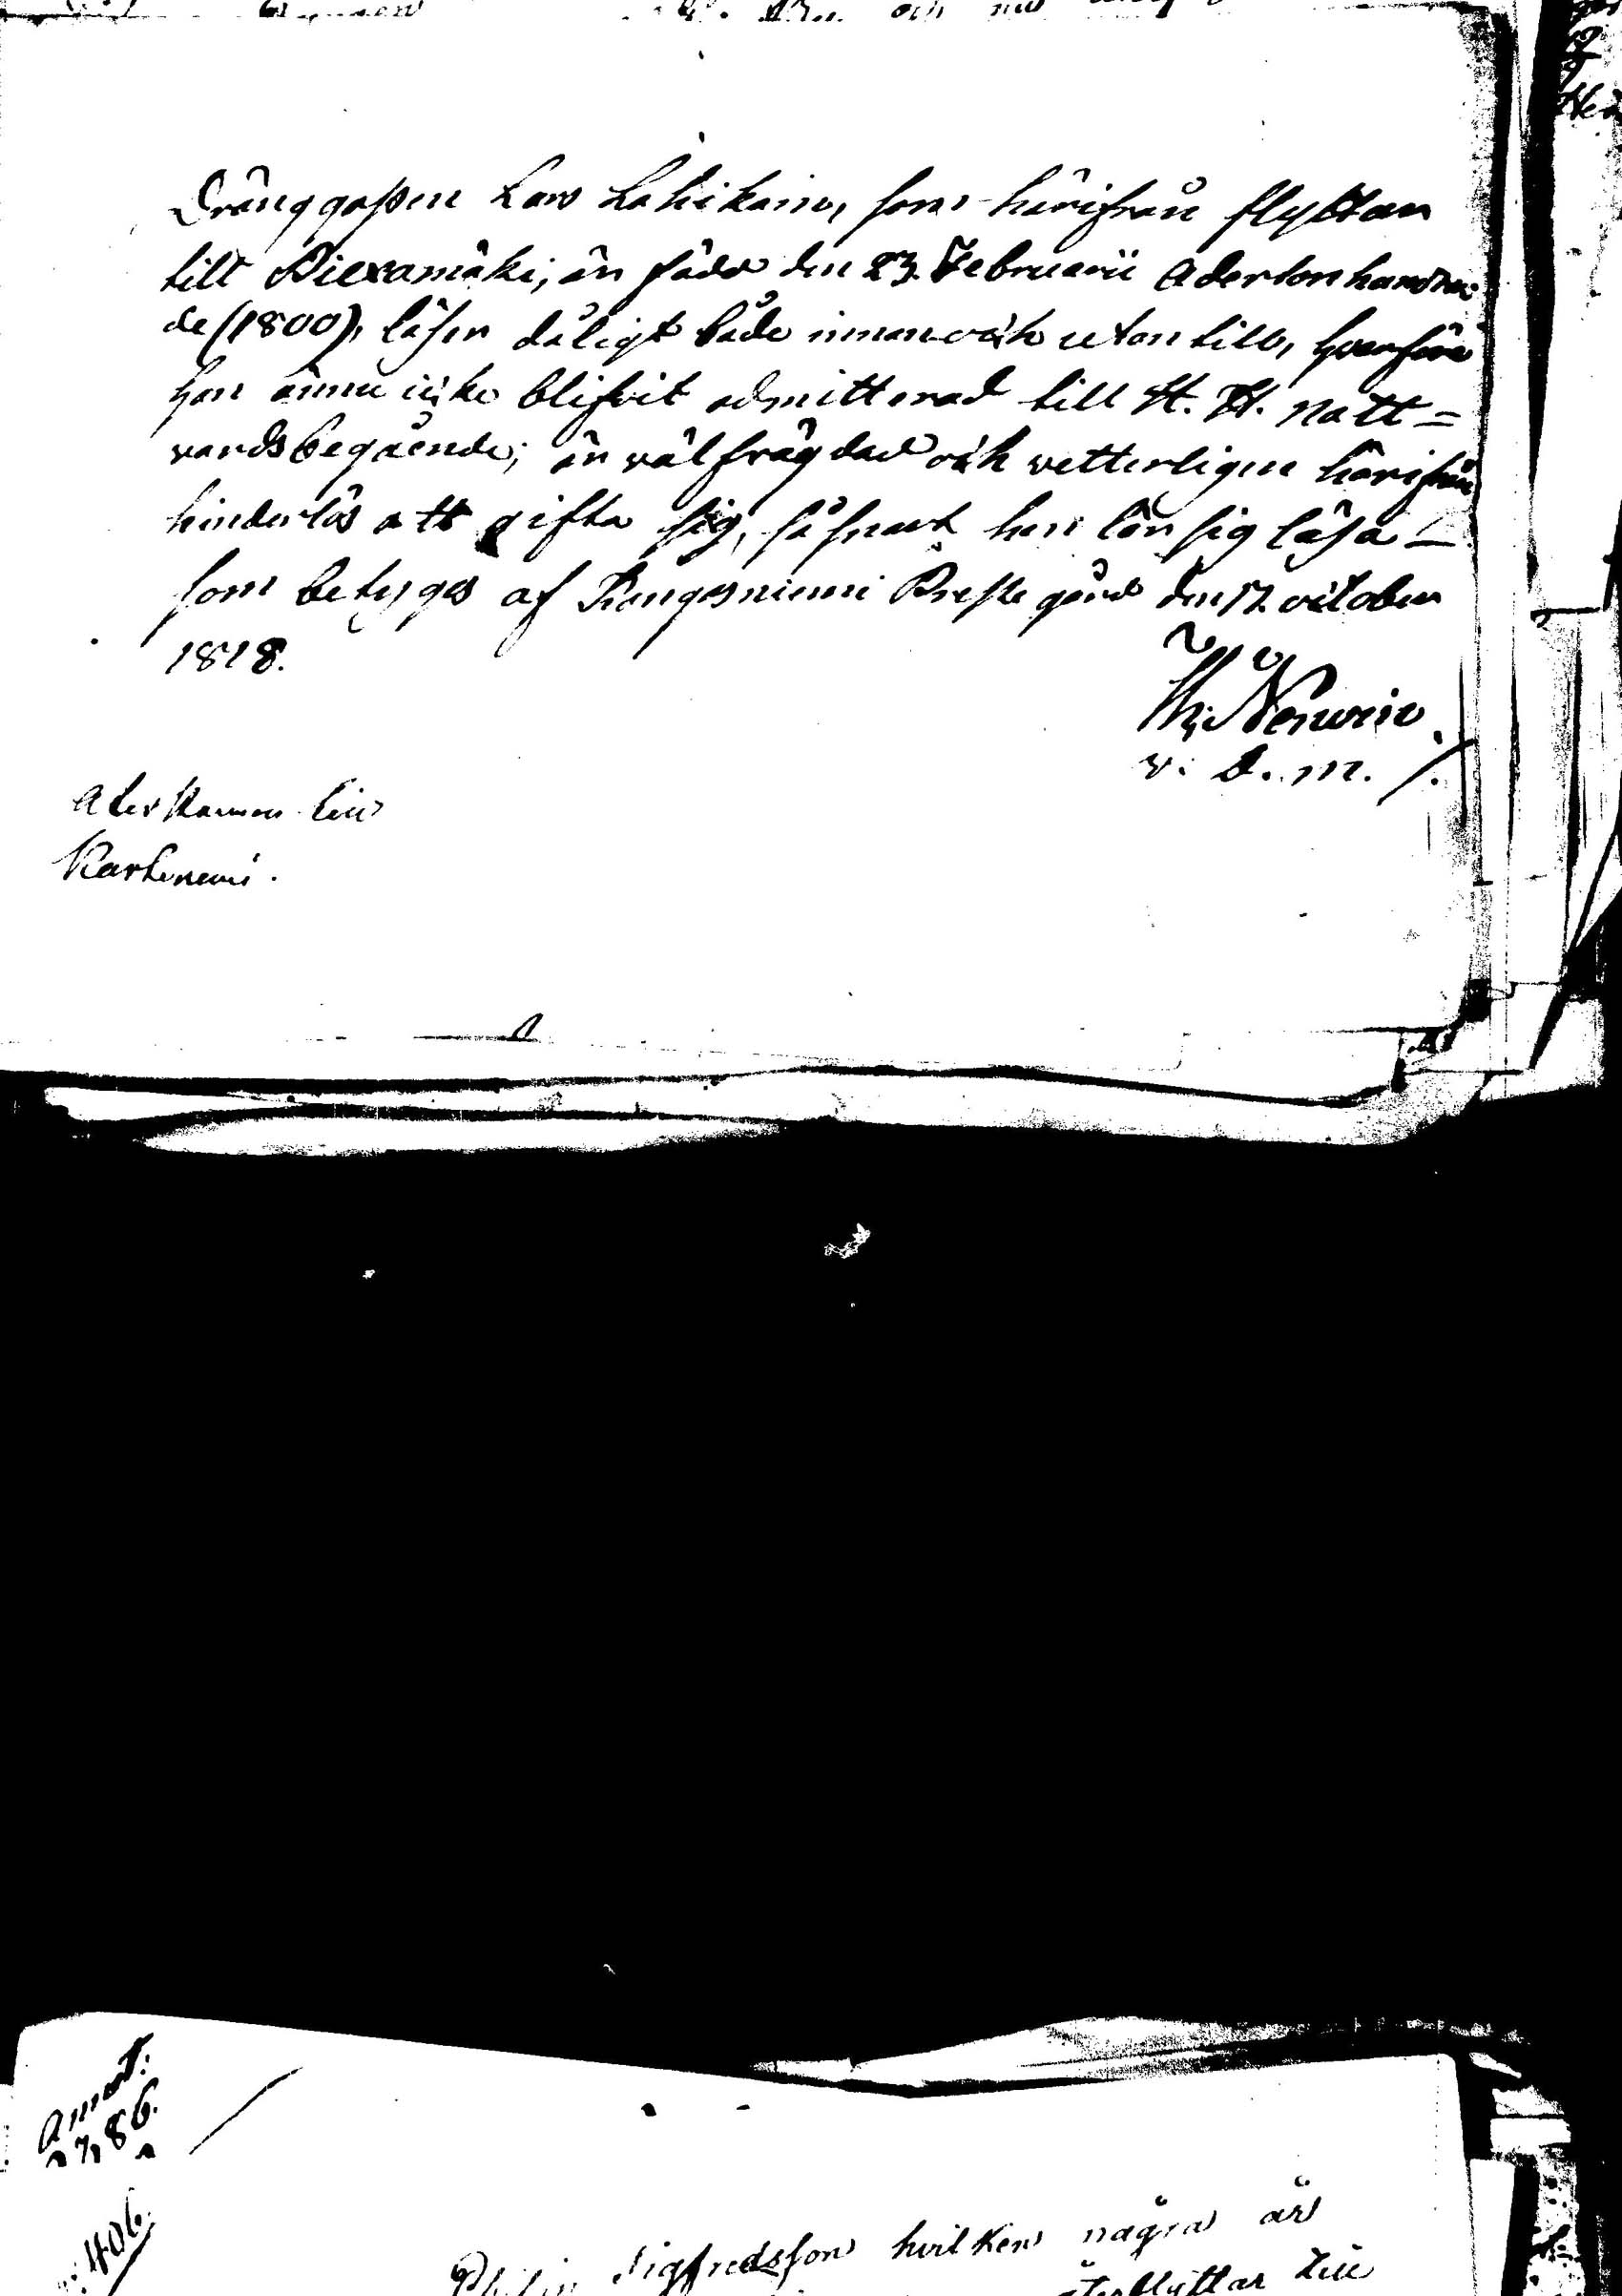 Dränggossen Lars Lahikain, som härifrån flyttar
till Piexamäki, är född den 23 Februarii Adertonhundra
de (1800), läser dåligt både innan och utan till, hvarföre
han ännu icke blifvit admitterad till H. H. Natt=
vardsbegående; är välfrägdad och vetterligen härifrån
hinderlös att gifta sig, så snart han lär sig läsa —
som betygas af Kangasniemi Prestegård den 17 october
1818.
v. D. m. /.
Återkommen till
Amot:
7, 86.
406.
Sigfredsson hvilken några år
återflyttar till